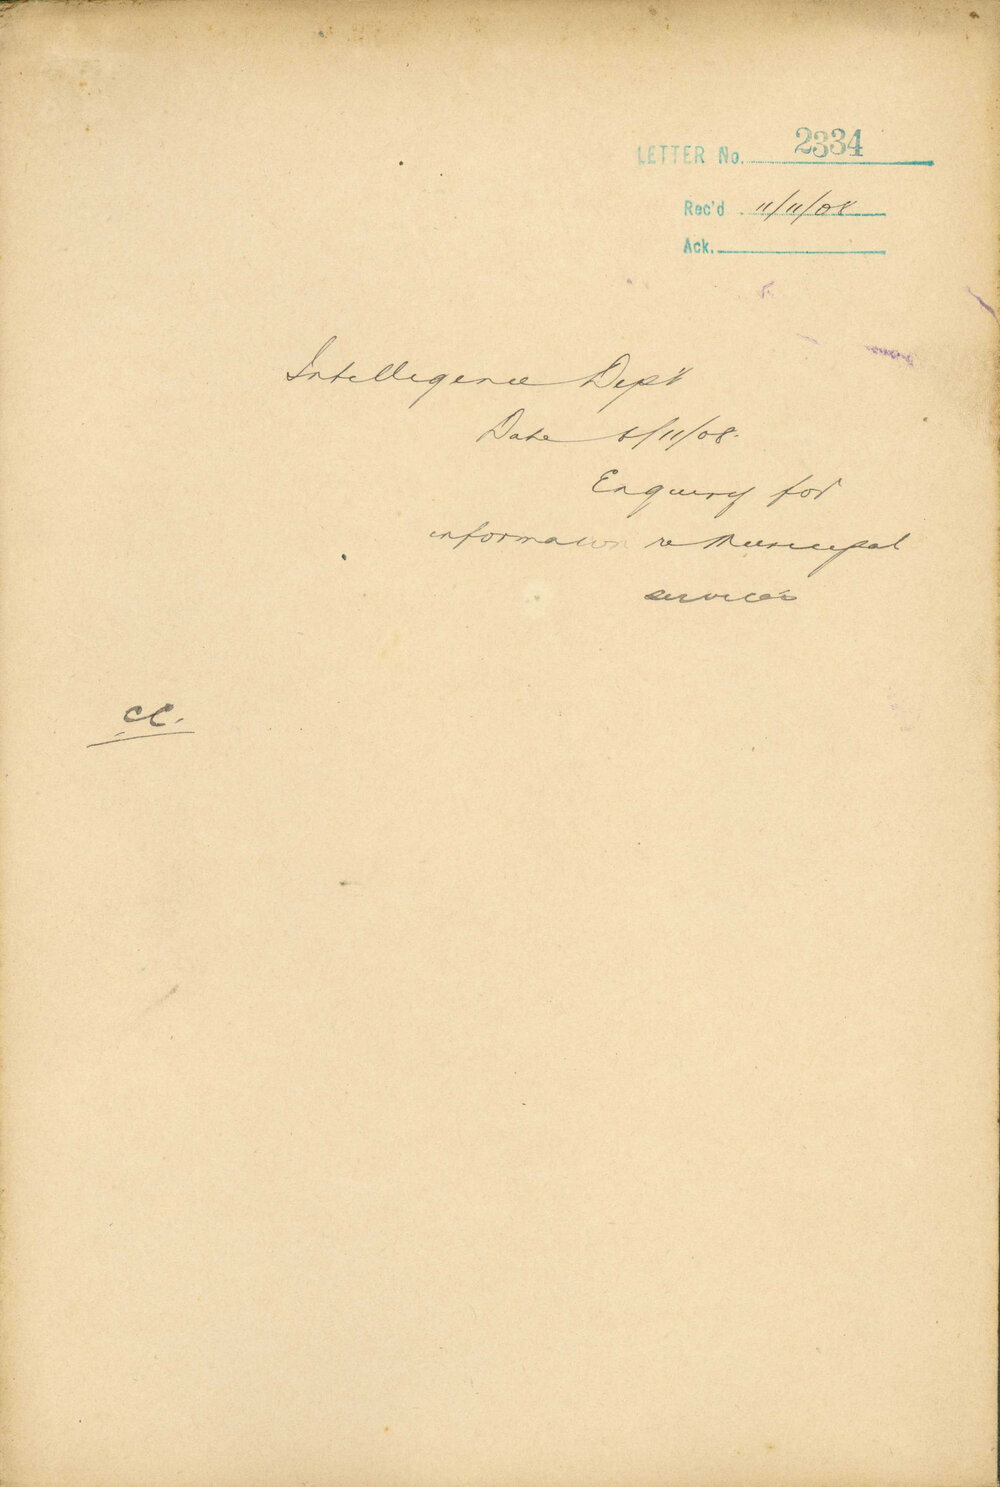 LETTER No. 2334
Rec'd 11/11/08
Ack.
Intelligence Dep't
Date 6/11/08.
Enquiry for
information re Municipal
services
CC.